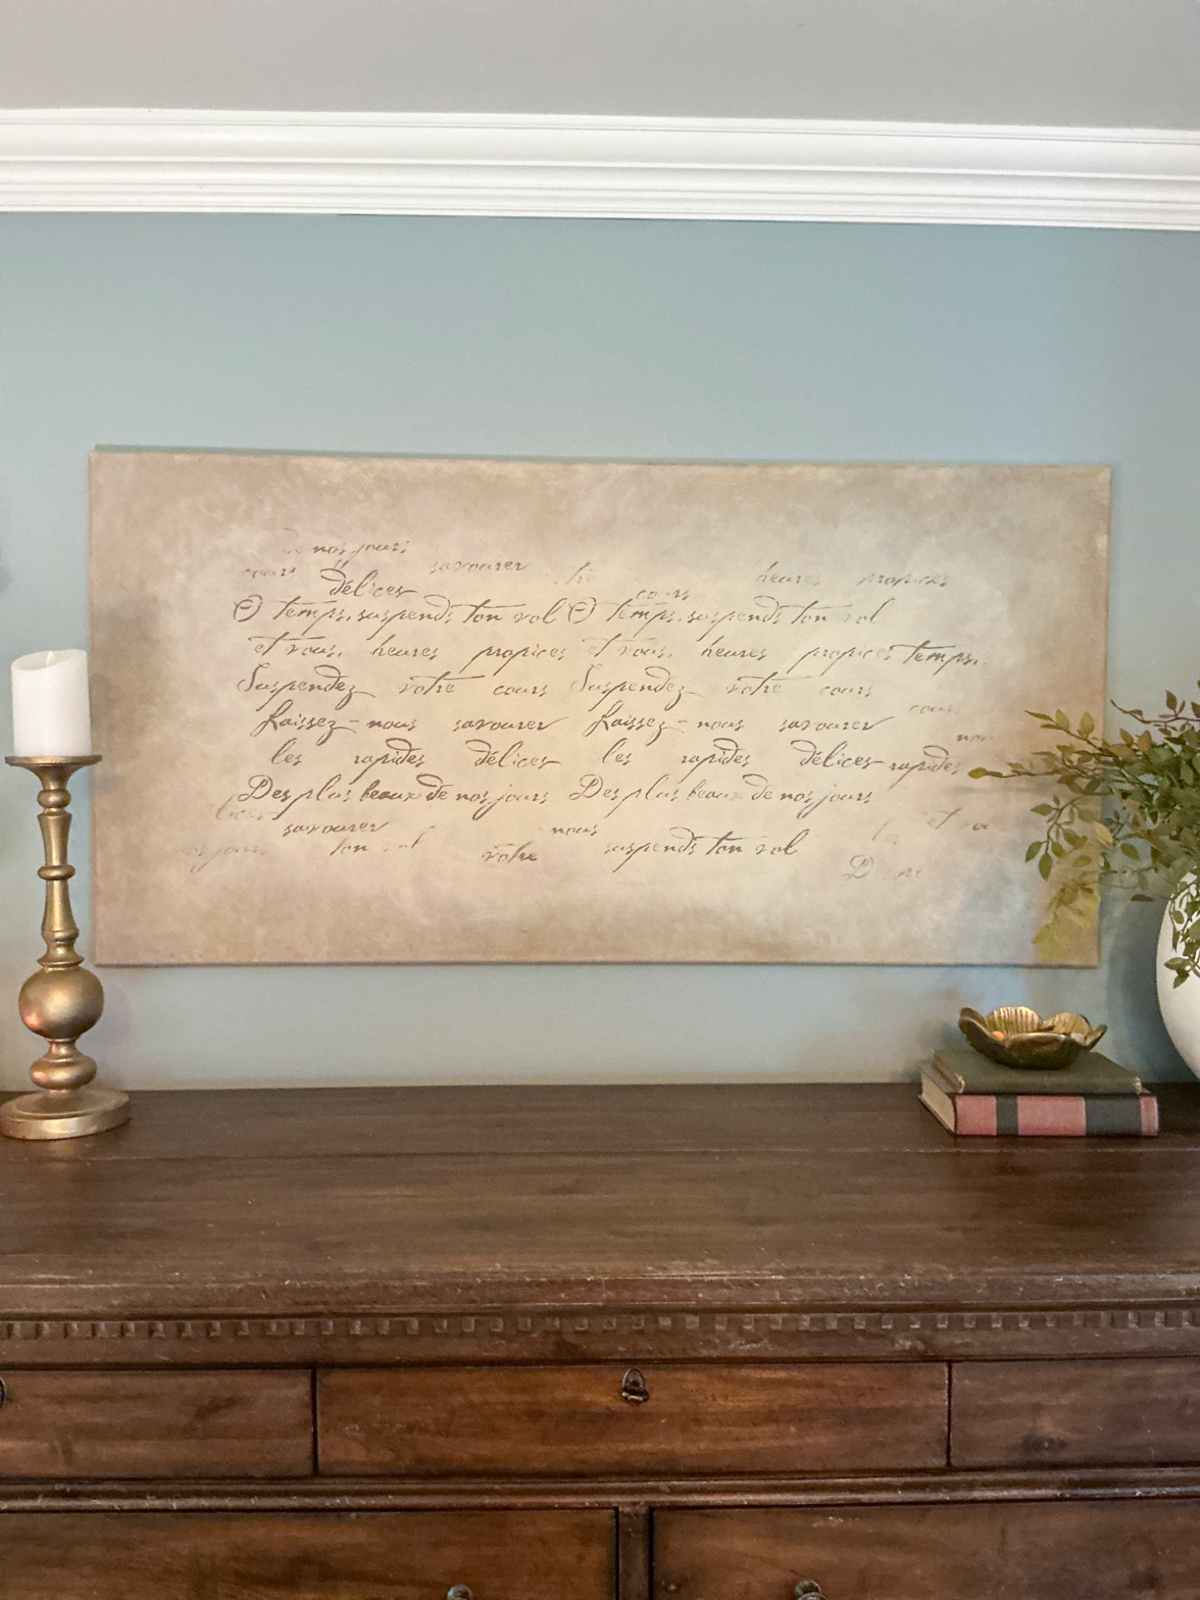 nos jours
cours savourer
délices heures propices
cours
O temps, suspends ton vol O temps, suspends ton vol
et vous, heures propices et vous, heures propices temps,
Suspendez votre cours Suspendez votre cours
cours
Laissez-nous savourer Laissez-nous savourer
les rapides délices les rapides délices rapides
Des plus beaux de nos jours Des plus beaux de nos jours
savourer nous et
jours ton vol votre suspends ton vol